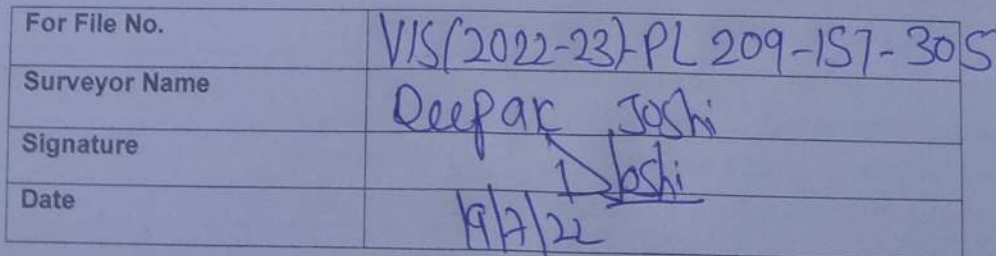 For File No. VIS(2022-23)-PL209-157-305
Surveyor Name Deepak Joshi
Signature DJoshi
Date 19/7/22